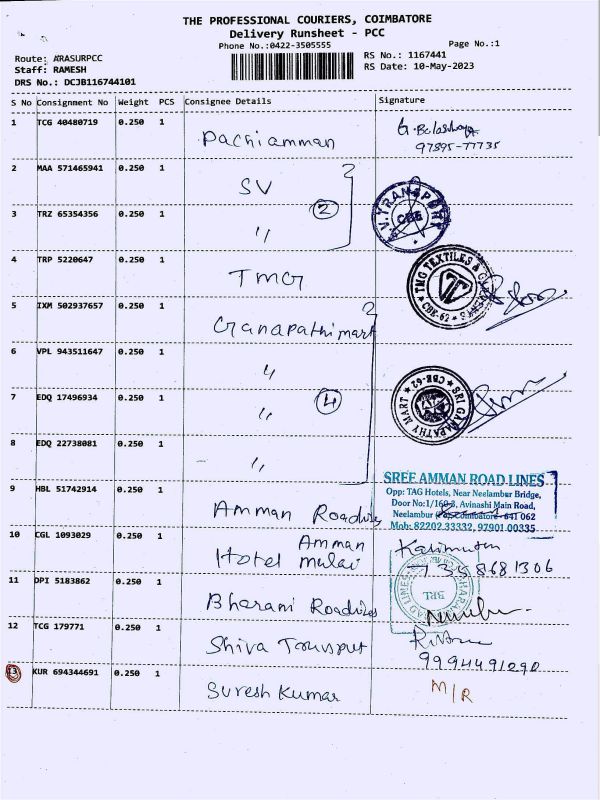 THE PROFESSIONAL COURIERS, COIMBATORE
Delivery Runsheet - PCC
Phone No.:0422-3505555
Page No.:1
Route: ARASURPCC
Staff: RAMESH
DRS No.: DCJB116744101
RS No.: 1167441
RS Date: 10-May-2023
S No Consignment No Weight PCS Consignee Details Signature
1 TCG 40480719 0.250 1 Pachiamman
97895-77735
2 MAA 571465941 0.250 1 SV
2
S.V.TRANSPORT CBE
3 TRZ 65354356 0.250 1 "
4 TRP 5220647 0.250 1 TMG
TMG TEXTILES & CBE-62
5 IXM 502937657 0.250 1 Ganapathi mart
6 VPL 943511647 0.250 1 "
7 EDQ 17496934 0.250 1 "
4
SRI GANAPATHY MART CBE-62
8 EDQ 22738081 0.250 1 "
9 HBL 51742914 0.250 1 Amman Roadlines
SREE AMMAN ROAD LINES
Opp: TAG Hotels, Near Neelambur Bridge,
Door No:1/160-3, Avinashi Main Road,
Neelambur Coimbatore-641 062
Mob: 82202 33332, 97901 00335
10 CGL 1093029 0.250 1 Hotel Amman
7358681306
11 DPI 5183862 0.250 1 Bharani Roadlines
BRL
12 TCG 179771 0.250 1 Shiva Transport
9994491290
13 KUR 694344691 0.250 1 Suresh Kumar
M/R